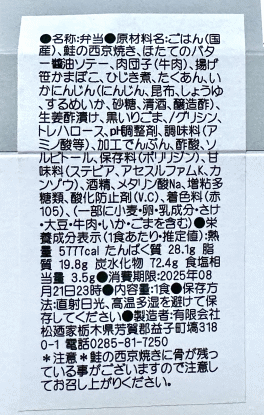 ●名称:弁当●原材料名:ごはん(国
産)、鮭の西京焼き、ほたてのバター
醤油ソテー、肉団子(牛肉)、揚げ
笹かまぼこ、ひじき煮、たくあん、い
かにんじん(にんじん、昆布、しょうゆ、
するめいか、砂糖、清酒、醸造酢)、
生姜酢漬け、黒いりごま、/グリシン、
トレハロース、pH調整剤、調味料(ア
ミノ酸等)、加工でんぷん、酢酸、ソ
ルビトール、保存料(ポリリジン)、甘
味料(ステビア、アセスルファムK、カ
ンゾウ)、酒精、メタリン酸Na、増粘多
糖類、酸化防止剤(V.C)、着色料(赤
105)、(一部に小麦・卵・乳成分・さけ
・大豆・牛肉・いか・ごまを含む)●栄
養成分表示(1食あたり・推定値):熱
量 577Kcal たんぱく質 28.1g 脂
質 19.8g 炭水化物 72.4g 食塩相
当量 3.5g●消費期限:2025年08
月21日23時●内容量:1食●保存方
法:直射日光、高温多湿を避けて保
存してください●製造者:有限会社
松廼家栃木県芳賀郡益子町塙318
0-1 電話0285-81-7250
*注意*鮭の西京焼きに骨が残っ
ている事がございますので注意し
てお召し上がりください。